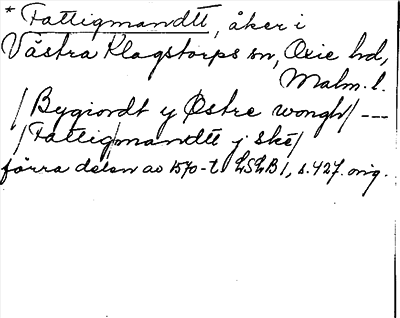 * Fattigmandtt, åker i
Västra Klagstorps sn, Oxie hd,
Malm. l.
/Bygiordt y Østre wongh/ ---
/Fattigmandtt y ske/
förra delen av 1570-t LSLB 1, s. 427. orig.